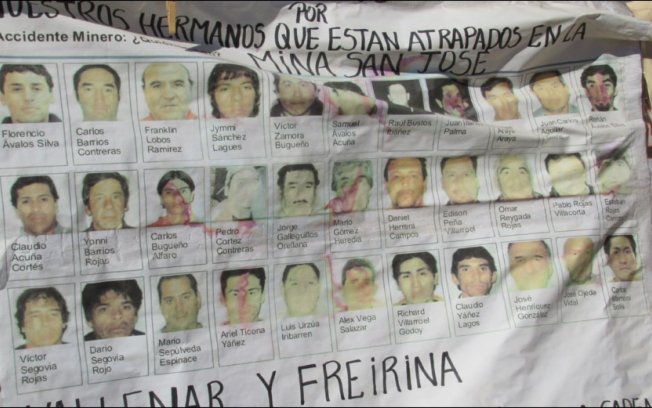 NUESTROS HERMANOS QUE ESTAN ATRAPADOS EN LA
POR
MINA SAN JOSE
Accidente Minero:
Florencio
Ávalos Silva
Carlos
Barrios
Contreras
Franklin
Lobos
Ramírez
Jymmi
Sánchez
Lagues
Víctor
Zamora
Bugueño
Samuel
Ávalos
Acuña
Raúl Bustos
Ibáñez
Palma
Araya
Juan Carlos
Aguilar
Renán
Ávalos Silva
Claudio
Acuña
Cortés
Yonni
Barrios
Rojas
Carlos
Bugueño
Alfaro
Pedro
Cortez
Contreras
Jorge
Galleguillos
Orellana
Mario
Gómez
Heredia
Daniel
Herrera
Campos
Edison
Peña
Villarroel
Omar
Reygada
Rojas
Pablo Rojas
Villacorta
Esteban
Rojas
Víctor
Segovia
Rojas
Dario
Segovia
Rojo
Mario
Sepúlveda
Espinace
Ariel Ticona
Yáñez
Luis Urzúa
Iribarren
Alex Vega
Salazar
Richard
Villarroel
Godoy
Claudio
Yáñez
Lagos
José
Henríquez
González
José Ojeda
Vidal
Carlos
Mamani
Solís
VALLENAR Y FREIRINA